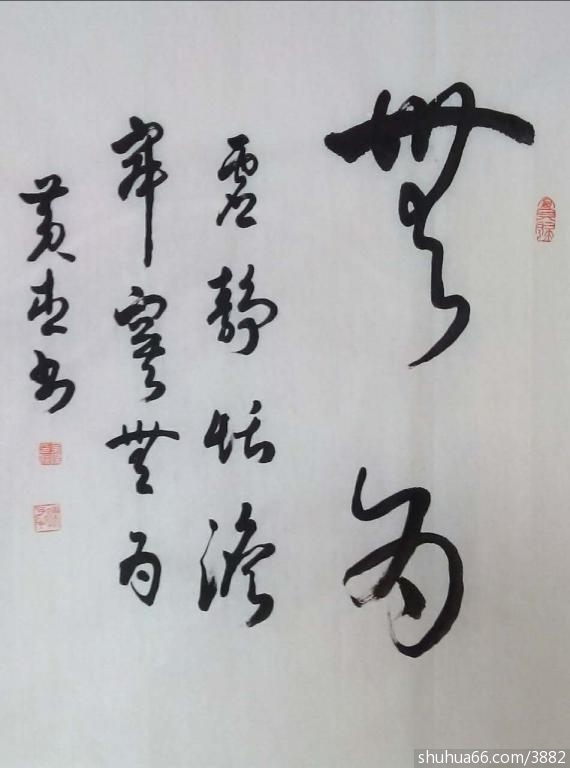 無為
虛靜恬澹
寂寞無為
黃
書
shuhua66.com/3882